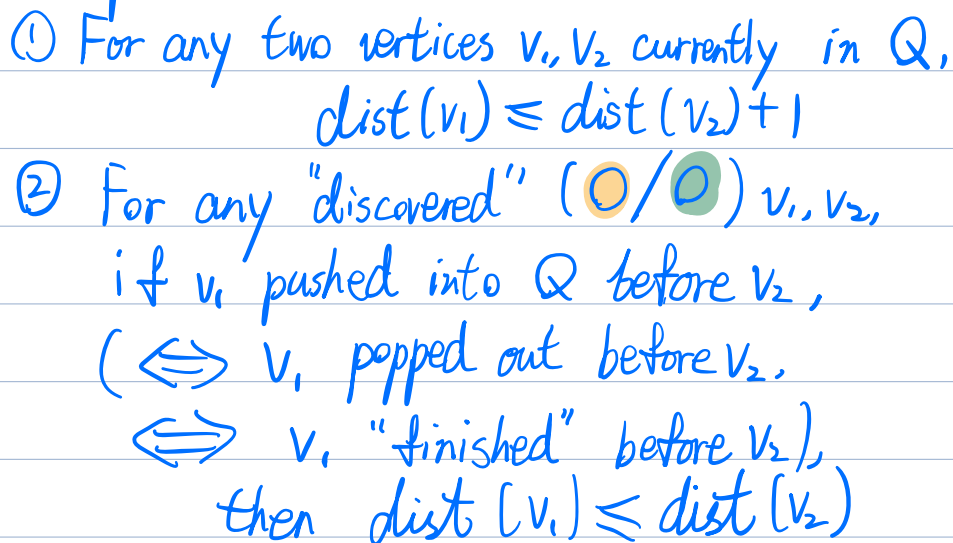 ① For any two vertices v₁, v₂ currently in Q,
dist(v₁) ≤ dist(v₂)+1
② For any "discovered" (O/O) v₁, v₂,
if v₁ pushed into Q before v₂,
(⇔ v₁ popped out before v₂,
⇔ v₁ "finished" before v₂),
then dist(v₁) ≤ dist(v₂)